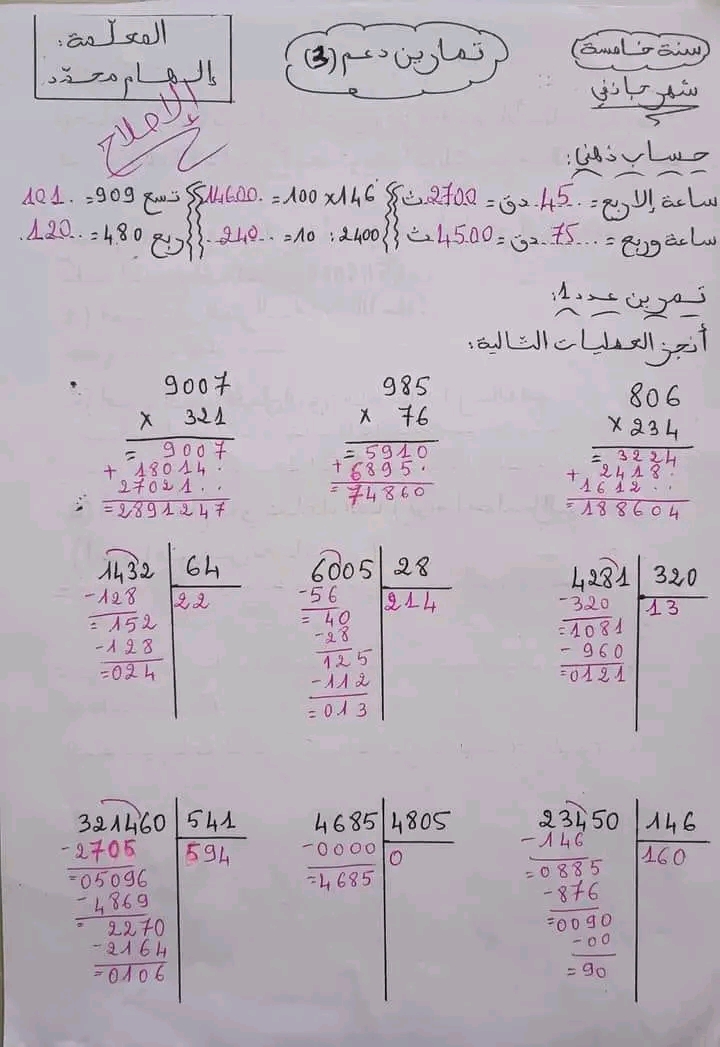 سنة خامسة
شهر جانفي
تمارين دعم (3)
المعلّمة:
إلهام محمّد
الإصلاح
حساب ذهني:
ساعة إلا ربع = ..45.. دق = 2700 ث
146 × 100 = 14600
تسع 909 = 101
ساعة وربع = ..75.. دق = 4500 ث
2400 : 10 = 240
ربع 480 = 120
تمرين عدد 1:
أنجز العمليات التالية:
806
× 234
= 3224
+ 2418.
1612..
= 188604
985
× 76
= 5910
+ 6895.
= 74860
9007
× 321
= 9007
+ 18014.
27021..
= 2891247
4281 320
-320 13
=1081
- 960
=0121
6005 28
-56 214
= 40
-28
125
-112
=013
1432 64
-128 22
= 152
-128
=024
23450 146
-146 160
=0885
-876
=0090
-00
=90
4685 4805
-0000 0
=4685
321460 541
-2705 594
=05096
-4869
= 2270
-2164
=0106